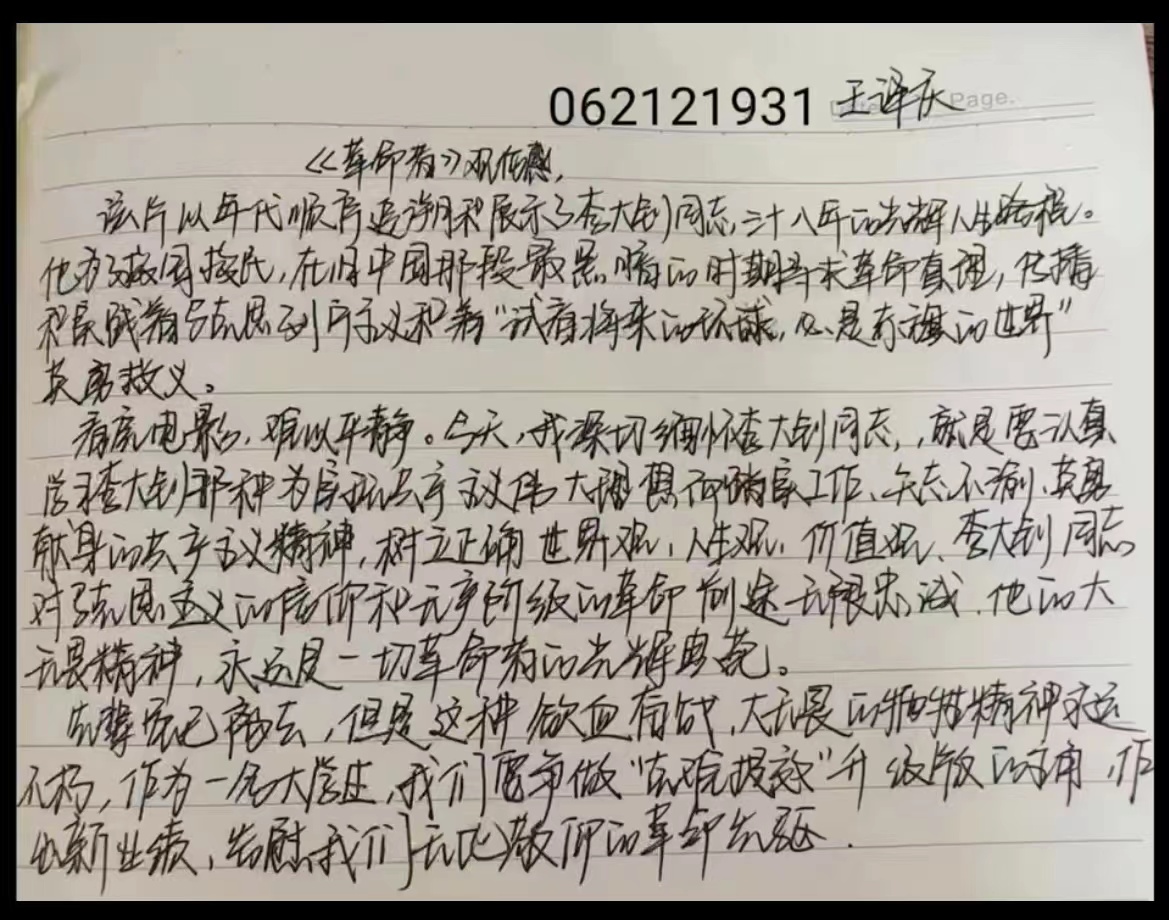 062121931 王译庆
Page.
《革命者》观后感.
该片以年代顺序追溯和展示了李大钊同志三十八年的光辉人生路程。
他为了救国救民,在旧中国那段最黑暗的时期寻求革命真理,传播
和实践着马克思列宁主义和着“试看将来的环球,必是赤旗的世界”
英勇救义。
看完电影,难以平静。今天,我深切缅怀李大钊同志,就是要认真
学习李大钊那种为实现共产主义伟大理想而踏实工作、矢志不渝、英勇
献身的共产主义精神,树立正确世界观、人生观、价值观、李大钊同志
对马克思主义的信仰和无产阶级的革命前途无限忠诚.他的大
无畏精神,永远是一切革命者的光辉典范。
先辈虽已离去,但是这种欲血奋战、大无畏的牺牲精神永远
不朽,作为一名大学生,我们要争做 升级版的 ,作
出新业绩,告慰我们无比敬仰的革命先驱.